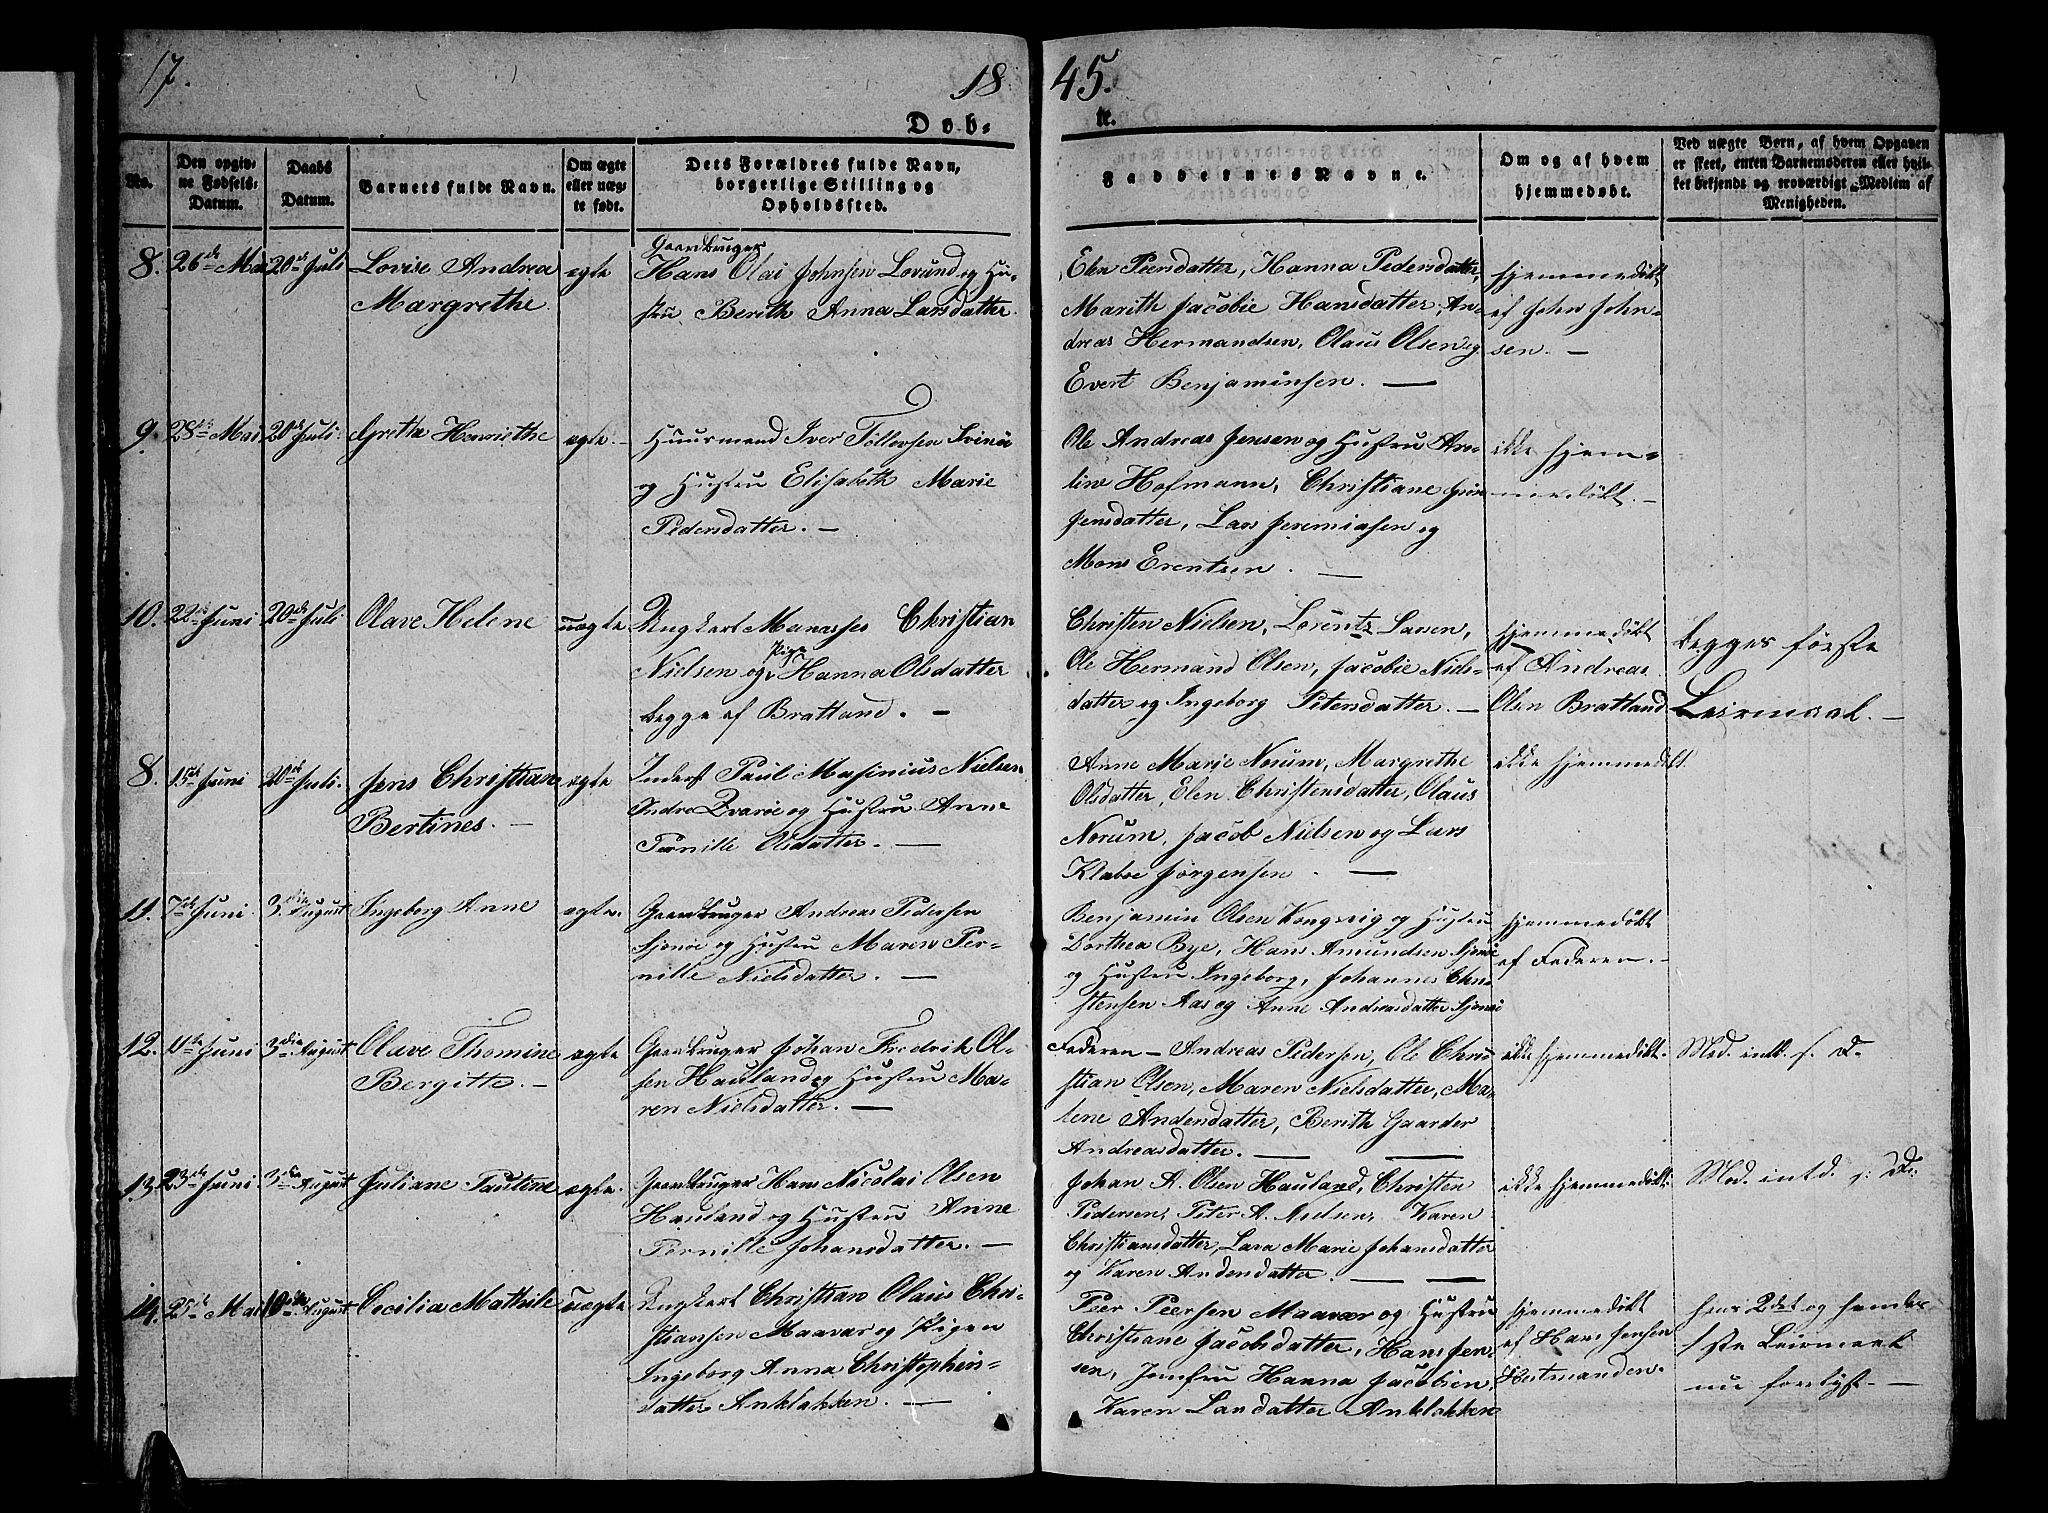 17.
18
45.
Dob-
te.
No.
Den opgiv-
ne Fødsels-
Datum.
Daabs
Datum.
Barnets fulde Navn.
Om ægte
eller uæg-
te født.
Dets Forældres fulde Navn,
borgerlige Stilling og
Opholdssted.
Faddernes Navne.
Om og af hvem
hjemmedøbt.
Ved uægte Børn, af hvem Opgaven
er skeet, enten Barnemoderen eller hvil-
ket bekjendt og troværdigt Medlem af
Menigheden.
8. 26de Mai 20de Juli Lovise Andrea ægte
Margrethe
Gaardbruger
Hans Olai Johnsen Lovund og Hu-
stru Berith Anna Larsdatter.
Elen Peersdatter, Hanna Pedersdatter,
Marith Jacobie Hansdatter, An-
dreas Hermandsen, Olaus Olsen og
Evert Benjaminsen. —
hjemmedøbt
af John John-
sen. —
9. 28de Mai 20de Juli. Gretha Henriethe ægte. —
Huusmand Iver Tollevsen
og Hustru Elisabeth Marie
Pedersdatter. —
Ole Andreas Jensen og Hustru Are-
line Hofmann, Christiane
Jensdatter, Lars Jeremiasen og
Mons Erentsen. —
ikke hjem-
medøbt. —
10. 22de Juni 20de Juli Olave Helene uægte
Ungkarl Manasses Christian
Nielsen og Pige Hanna Olsdatter
begge af Bratland. —
Christen Nielsen, Lorentz Larsen,
Ole Hermand Olsen, Jacobie Niels-
datter og Ingeborg Petersdatter. —
hjemmedøbt
af Andreas
Olsen Bratland
begges første
Leiermaal. —
8. 15de Juni 20de Juli. Jens Christian ægte
Bertines. —
Inderst Paul Masinius Nielsen
Indre Qvarøe og Hustru Anne
Pernille Olsdatter. —
Anne Marie Norum, Margrethe
Olsdatter, Elen Christensdatter, Olaus
Norum, Jacob Nielsen og Lars
Klaboe Jørgensen. —
ikke hjemmedøbt.
11. 7de Juni 3die August Ingeborg Anne ægte.
Gaardbruger Andreas Pedersen
Sjonøe og Hustru Maren Per-
nille Nielsdatter. —
Benjamin Olsen Kongsvig og Hustru
Dorthea Bye, Hans Amundsen Sjonøe
og Hustru Ingeborg, Johannes Chri-
stensen Aas og Anne Andreasdatter Sjonøe
hjemmedøbt
af Faderen. —
12. 11te Juni 3die August Olave Thomine ægte
Bergitte. —
Gaardbruger Johan Fredrik Ol-
sen Hauland og Hustru Ma-
ren Nielsdatter. —
Faderen — Andreas Pedersen, Ole Chri-
stian Olsen, Maren Nielsdatter, Ma-
lene Andersdatter, Berith Gaarder
Andreasdatter. —
ikke hjemmedøbt.
Mod. intd. s. D.
13. 23de Juni 3die August Juliane Pauline ægte.
Gaardbruger Hans Nicolai Olsen
Hauland og Hustru Anne
Pernille Johansdatter. —
Johan A. Olsen Hauland, Christen
Pedersen, Peter A. Nielsen, Karen
Christiansdatter, Lara Marie Johansdatter
og Karen Andersdatter. —
ikke hjemmedøbt.
Mod. intd. s. D.
14. 25de Mai 10de August Cecilia Mathilde uægte
Ungkarl Christian Olaus Chri-
stiansen Maavær og Pigen
Ingeborg Anna Christophers-
datter Anklakken. —
Peer Peersen Maavær og Hustru
Christiane Jacobsdatter, Hans Jen-
sen, Jomfru Hanna Jacobsen,
Karen Larsdatter Anklakken
hjemmedøbt
af Hans Jensen
Hestmanden.
hans 2det og hendes
1ste Leiermaal
nu forelyst. —